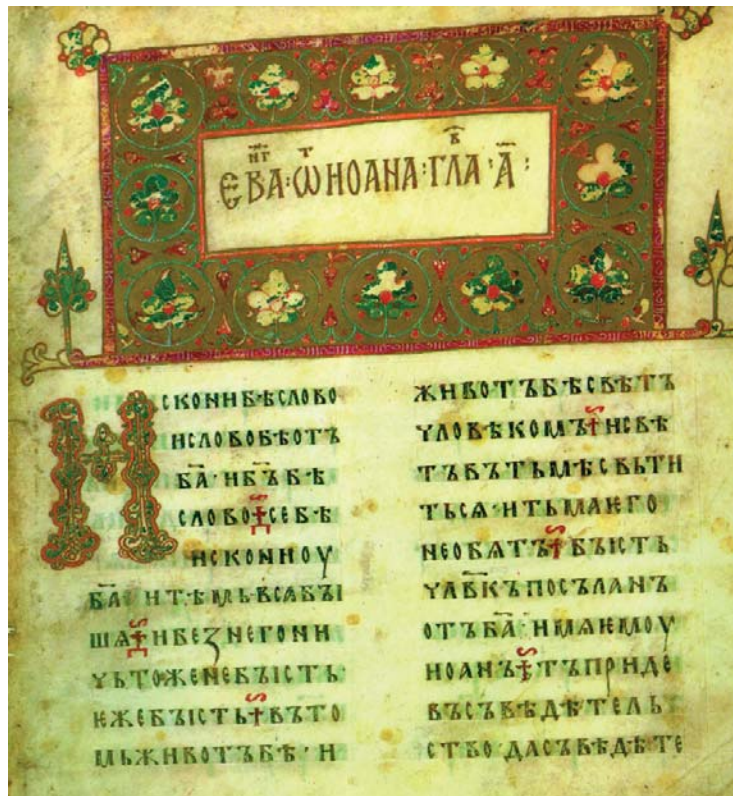 ЕВА҃НГ·Ѿ ИОАНА·ГЛА҃В·А҃:
ИСКОНИБѢСЛОВО
ИСЛОВОБѢОТЪ
БА҃·ИБЪ҃БѢ
СЛОВО·СЕБѢ
ИСКОНИОУ
БА҃·ИТѢМЬВСАБЪІ
ША·ИБЕꙀНЕГОНИ
ЧЬТОЖЕНЕБЪІСТЬ·
ѤЖЕБЪІСТЬ·ВЪТО
МЬЖИВОТЪБѢ·И
ЖИВОТЪБѢСВѢТЪ
ЧЛОВѢКОМЪ·ИСВѢ
ТЪВЪТЬМѢСВЬТИ
ТЬСѦ·ИТЬМАѤГО
НЕОБѦТЪ·БЪІСТЬ
ЧЛ҃ВКЪПОСЪЛАНЪ
ОТЪБА҃·ИМѦѤМОУ
ИОАНЪ·ТЪПРИДЕ
ВЪСЪВѢДѢТЕЛЬ
СТВО·ДАСЪВѢДѢТЕ